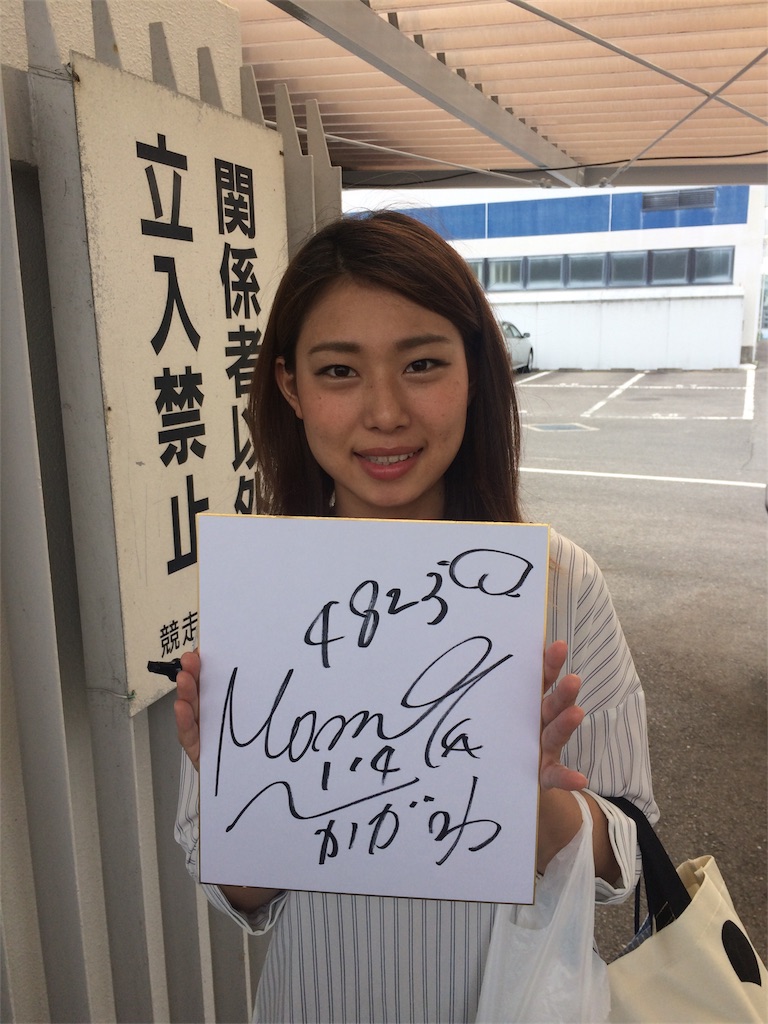 関係者以外
立入禁止
競走
4823
Momoka
かがわ